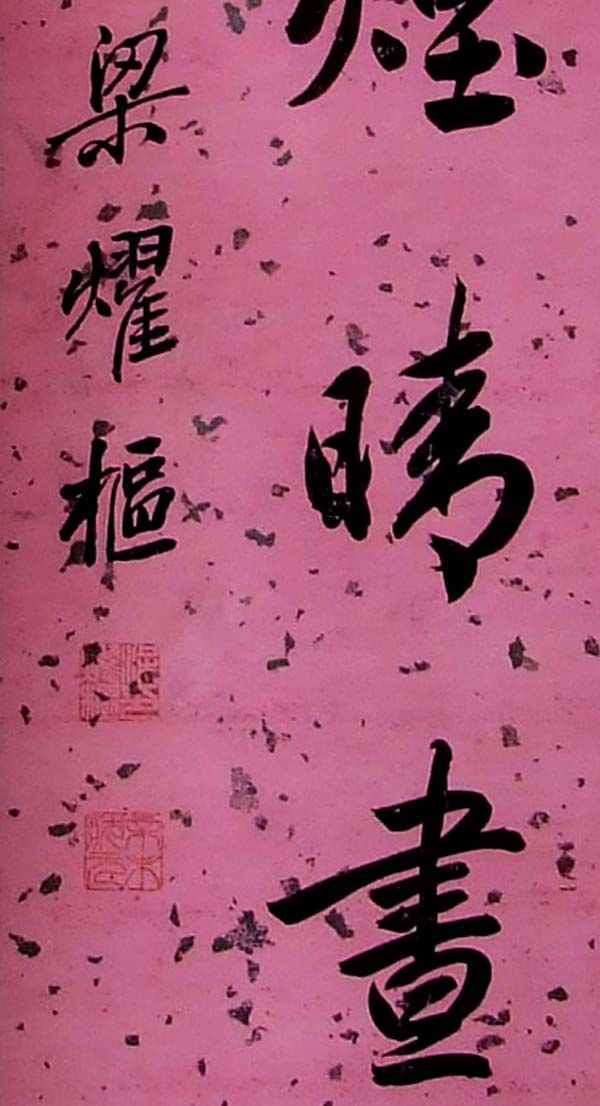 煙晴晝
梁燿樞